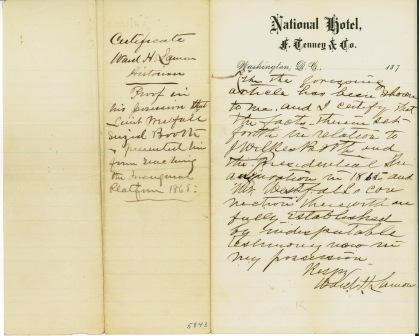 Certificate
Ward H. Lamon
Historian
Proof in
his possession that
Lieut Westfall
Seized Booth
prevented him
from reaching
the Inaugural
Platform 1865-
5843
National Hotel,
F. Tenney & Co.
Washington, D.C. 187
the foregoing
article has been shown
to me, and I certify that
the facts therein set
forth in relation to
J Wilkes Booth and
the Presidential In-
auguration in 1865 and
Mr Westfall's con
nection therewith are
fully established
by indisputable
testimony now in
my possession
Respy
Ward H Lamon